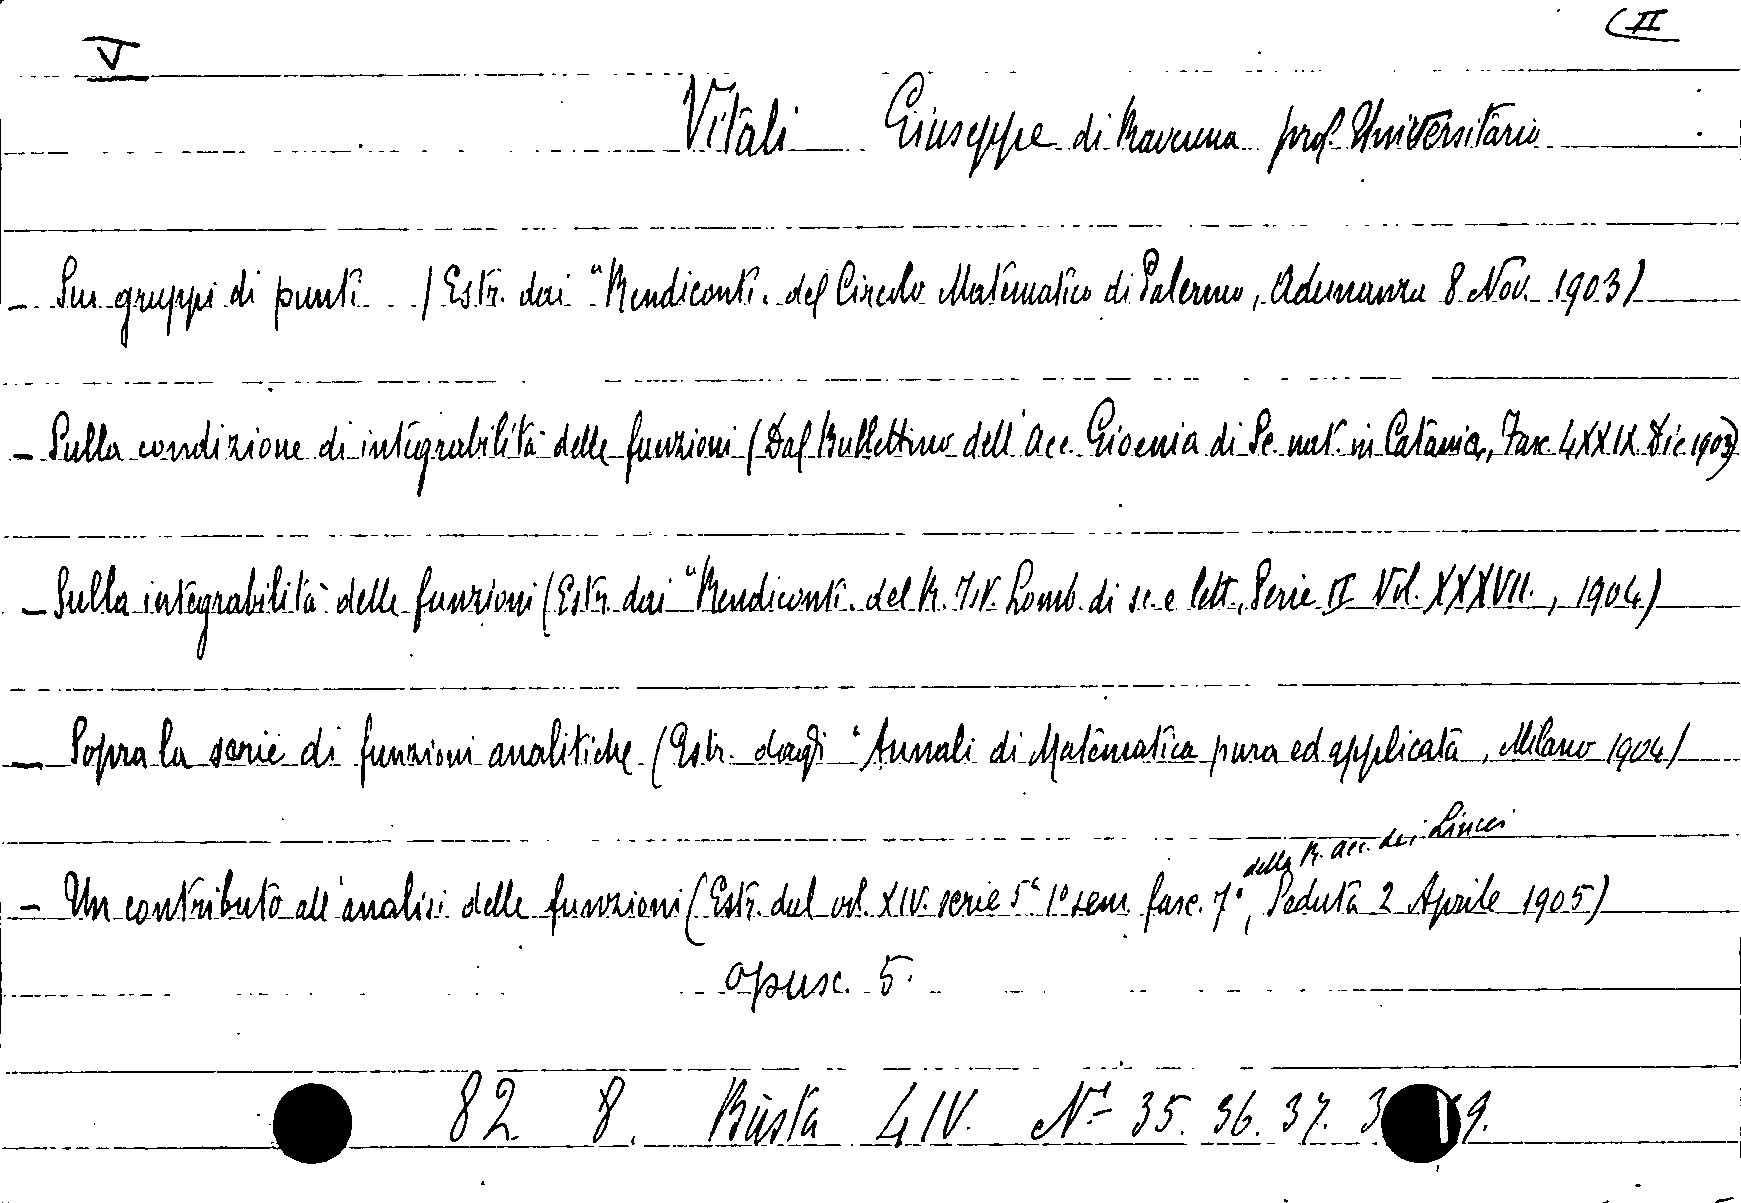 V
II
Vitali Giuseppe di Ravenna prof. Universitario
- Sui gruppi di punti (Estr. dai "Rendiconti. del Circolo Matematico di Palermo, Adunanza 8 Nov. 1903)
- Sulla condizione di integrabilità delle funzioni (Dal Bullettino dell'Acc. Gioenia di Sc. nat. in Catania, Fasc. LXXIX. Dic 1903)
- Sulla integrabilità delle funzioni (Estr. dai "Rendiconti. del R. Ist. Lomb. di sc. e lett., Serie II Vol. XXXVII., 1904)
- Sopra la serie di funzioni analitiche (Estr. dagli "Annali di Matematica pura ed applicata, Milano 1904)
della R. Acc. dei Lincei
- Un contributo all'analisi delle funzioni (Estr. dal vol. XIV. serie 5ª 1º sem. fasc. 7º, Seduta 2 Aprile 1905)
opusc. 5.
82 8. Busta LIV. Nⁱ 35. 36. 37. 3 9.